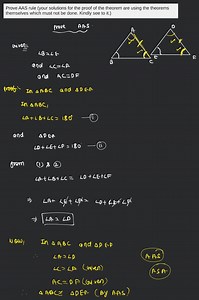 Prove AAS rule (your solutions for the proof of the theorem are using the theorems
themselves which must not be done. Kindly see to it.)
Prove AAS
Given:
∠B=∠E
and ∠C=∠F
and AC=DF
Proof:- In ΔABC and ΔDEF
In ΔABC,
∠A+∠B+∠C=180 — (i)
and ΔDEF
∠D+∠E+∠F=180 — (ii)
from (1) & (2)
∠A+∠B+∠C = ∠D+∠E+∠F
⇒ ∠A+∠B+∠C = ∠D+∠B+∠C
⇒ ∠A = ∠D
Now, In ΔABC and ΔDEF
∠A = ∠D
∠C = ∠F (Given)
AC = DF (Given)
ΔABC ≅ ΔDEF (By AAS)
AAS
ASA
A
B
C
D
E